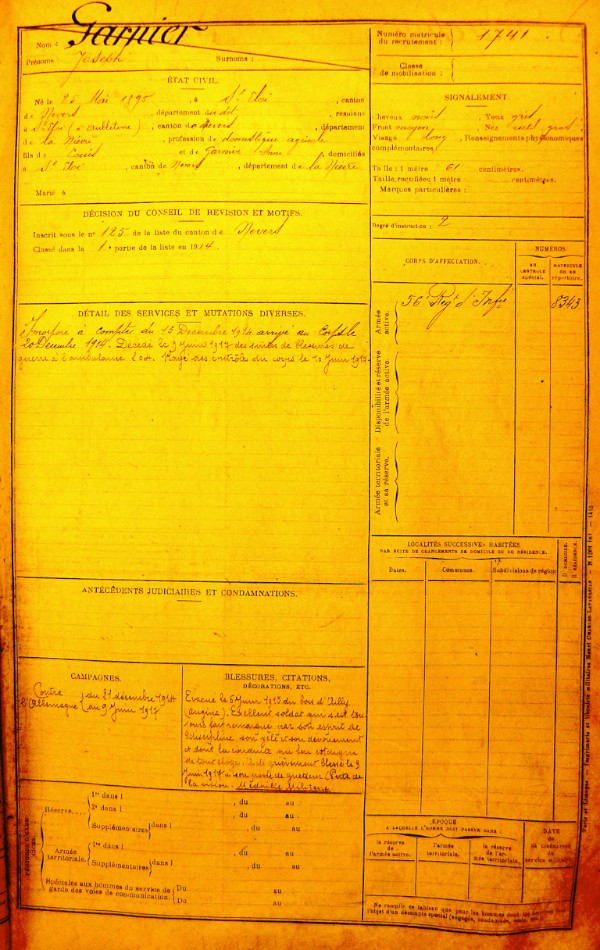 Nom : Garnier
Prénoms : Joseph Surnoms :
Numéro matricule du recrutement : 1741
Classe de mobilisation :
ÉTAT CIVIL.
Né le 25 Mai 1895, à St Eloi, canton
de Nevers, département dudit, résidant
à St Eloi, canton de Nevers, département
de la Nièvre, profession de domestique agricole
fils de et de Garnier, domiciliés
à St Eloi, canton de Nevers, département de la Nièvre
Marié à
SIGNALEMENT.
Cheveux noir, Yeux gris
Front moyen, Nez
Visage long, Renseignements physionomiques
complémentaires :
Taille : 1 mètre 61 centimètres.
Taille rectifiée : 1 mètre centimètres.
Marques particulières :
Degré d'instruction : 2
DÉCISION DU CONSEIL DE REVISION ET MOTIFS.
Inscrit sous le n° 125 de la liste du canton de Nevers
Classé dans la 1e partie de la liste en 1914.
CORPS D'AFFECTATION.
NUMÉROS
AU CONTRÔLE spécial.
MATRICULE OU AU répertoire.
Armée active.
56e Regt d'Infie 8343
Disponibilité et réserve de l'armée active.
Armée territoriale et sa réserve.
DÉTAIL DES SERVICES ET MUTATIONS DIVERSES.
Incorporé à compter du 15 Décembre 1914 arrivé au Corps le
20 Décembre 1914. Décédé le 9 Juin 1917 des suites de blessures de
guerre à l'ambulance Rayé des contrôles du corps le 10 Juin 1917
LOCALITÉS SUCCESSIVES HABITÉES
PAR SUITE DE CHANGEMENTS DE DOMICILE OU DE RÉSIDENCE.
Dates. Communes. Subdivisions de région. D. DOMICILE. R. RÉSIDENCE.
ANTÉCÉDENTS JUDICIAIRES ET CONDAMNATIONS.
CAMPAGNES.
Contre l'Allemagne du 21 décembre 1914
au 9 Juin 1917
BLESSURES, CITATIONS,
DÉCORATIONS, ETC.
Evacué le 5 Juin 1915 du bois d'Ailly
(angine). Excellent soldat qui s'est tou
jours fait remarquer par son esprit de
discipline son zèle et son dévouement
et dont la conduite au feu est digne
de tout éloge. A été grièvement blessé le 9
Juin 1917 à son poste de guetteur (Perte de
la vision. Médaille Militaire
PÉRIODES D'EXERCICES.
Réserve
1re dans l , du au .
2e dans l , du au .
Supplémentaires dans l , du au
Armée territoriale.
1re dans l , du au .
Supplémentaires dans l , du au .
Spéciales aux hommes du service de
garde des voies de communication.
Du au
Du au
ÉPOQUE
A LAQUELLE L'HOMME DOIT PASSER DANS :
la réserve de l'armée active.
l'armée territoriale.
la réserve de l'armée territoriale.
DATE
de la libération
du service militaire.
Ne remplir ce tableau que pour les hommes dont
l'objet d'un décompte spécial (engagés, condamnés, omis, etc.)
Paris et Limoges. — Imprimerie et librairie militaires Henri CHARLES-LAVAUZELLE.